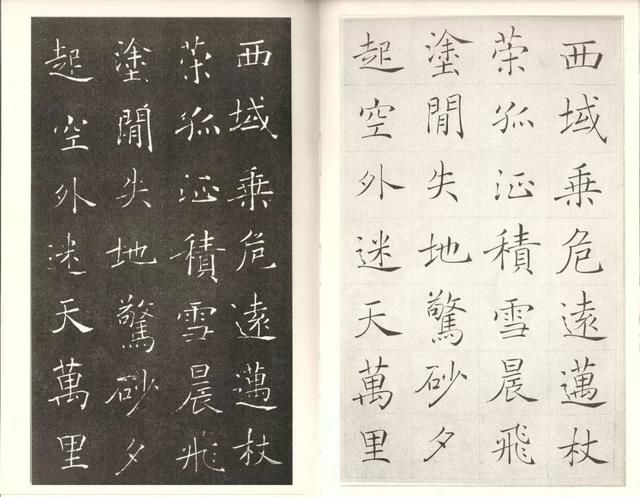 西域乗危遠邁杖
策孤征積雪晨飛
塗閒失地驚砂夕
起空外迷天萬里
西域乗危遠邁杖
策孤征積雪晨飛
塗閒失地驚砂夕
起空外迷天萬里